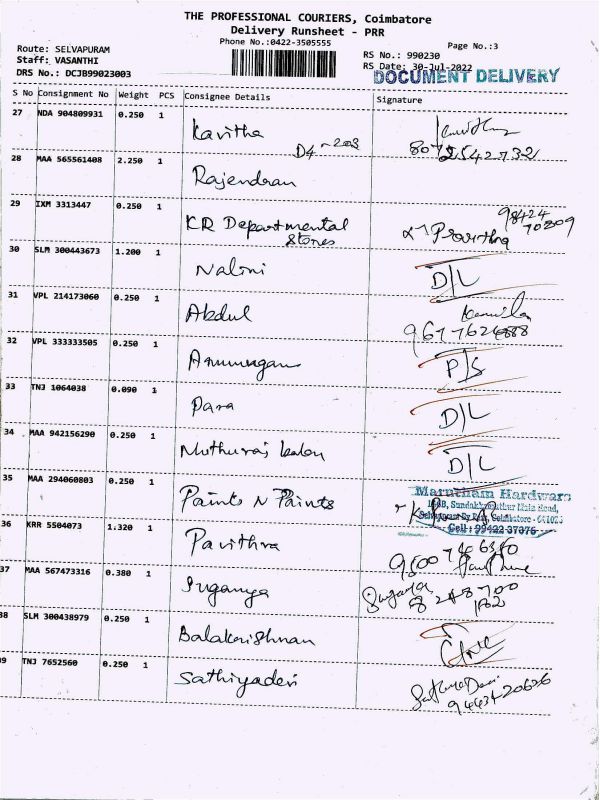 THE PROFESSIONAL COURIERS, Coimbatore
Delivery Runsheet - PRR
Phone No.:0422-3505555
Page No.:3
Route: SELVAPURAM
RS No.: 990230
Staff: VASANTHI
RS Date: 30-Jul-2022
DRS No.: DCJB99023003
DOCUMENT DELIVERY
S No Consignment No Weight PCS Consignee Details Signature
27 NDA 904809931 0.250 1 Kavitha D4-203
28 MAA 565561408 2.250 1 Rajendran
29 IXM 3313447 0.250 1 KR Departmental
Stores
98424
70209
30 SLM 300443673 1.200 1 Nalini D/L
31 VPL 214173060 0.250 1 Abdul
32 VPL 333333505 0.250 1 Arumugam P/S
33 TNJ 1064038 0.090 1 Para D/L
34 MAA 942156290 0.250 1 Muthuraj D/L
35 MAA 294060803 0.250 1 Paints N Paints
Marutham Hardware
Cell : 99422 37376
36 KRR 5504073 1.320 1 Pavithra
37 MAA 567473316 0.380 1 Suganya
38 SLM 300438979 0.250 1 Balakrishnan
39 TNJ 7652560 0.250 1 Sathiyadevi